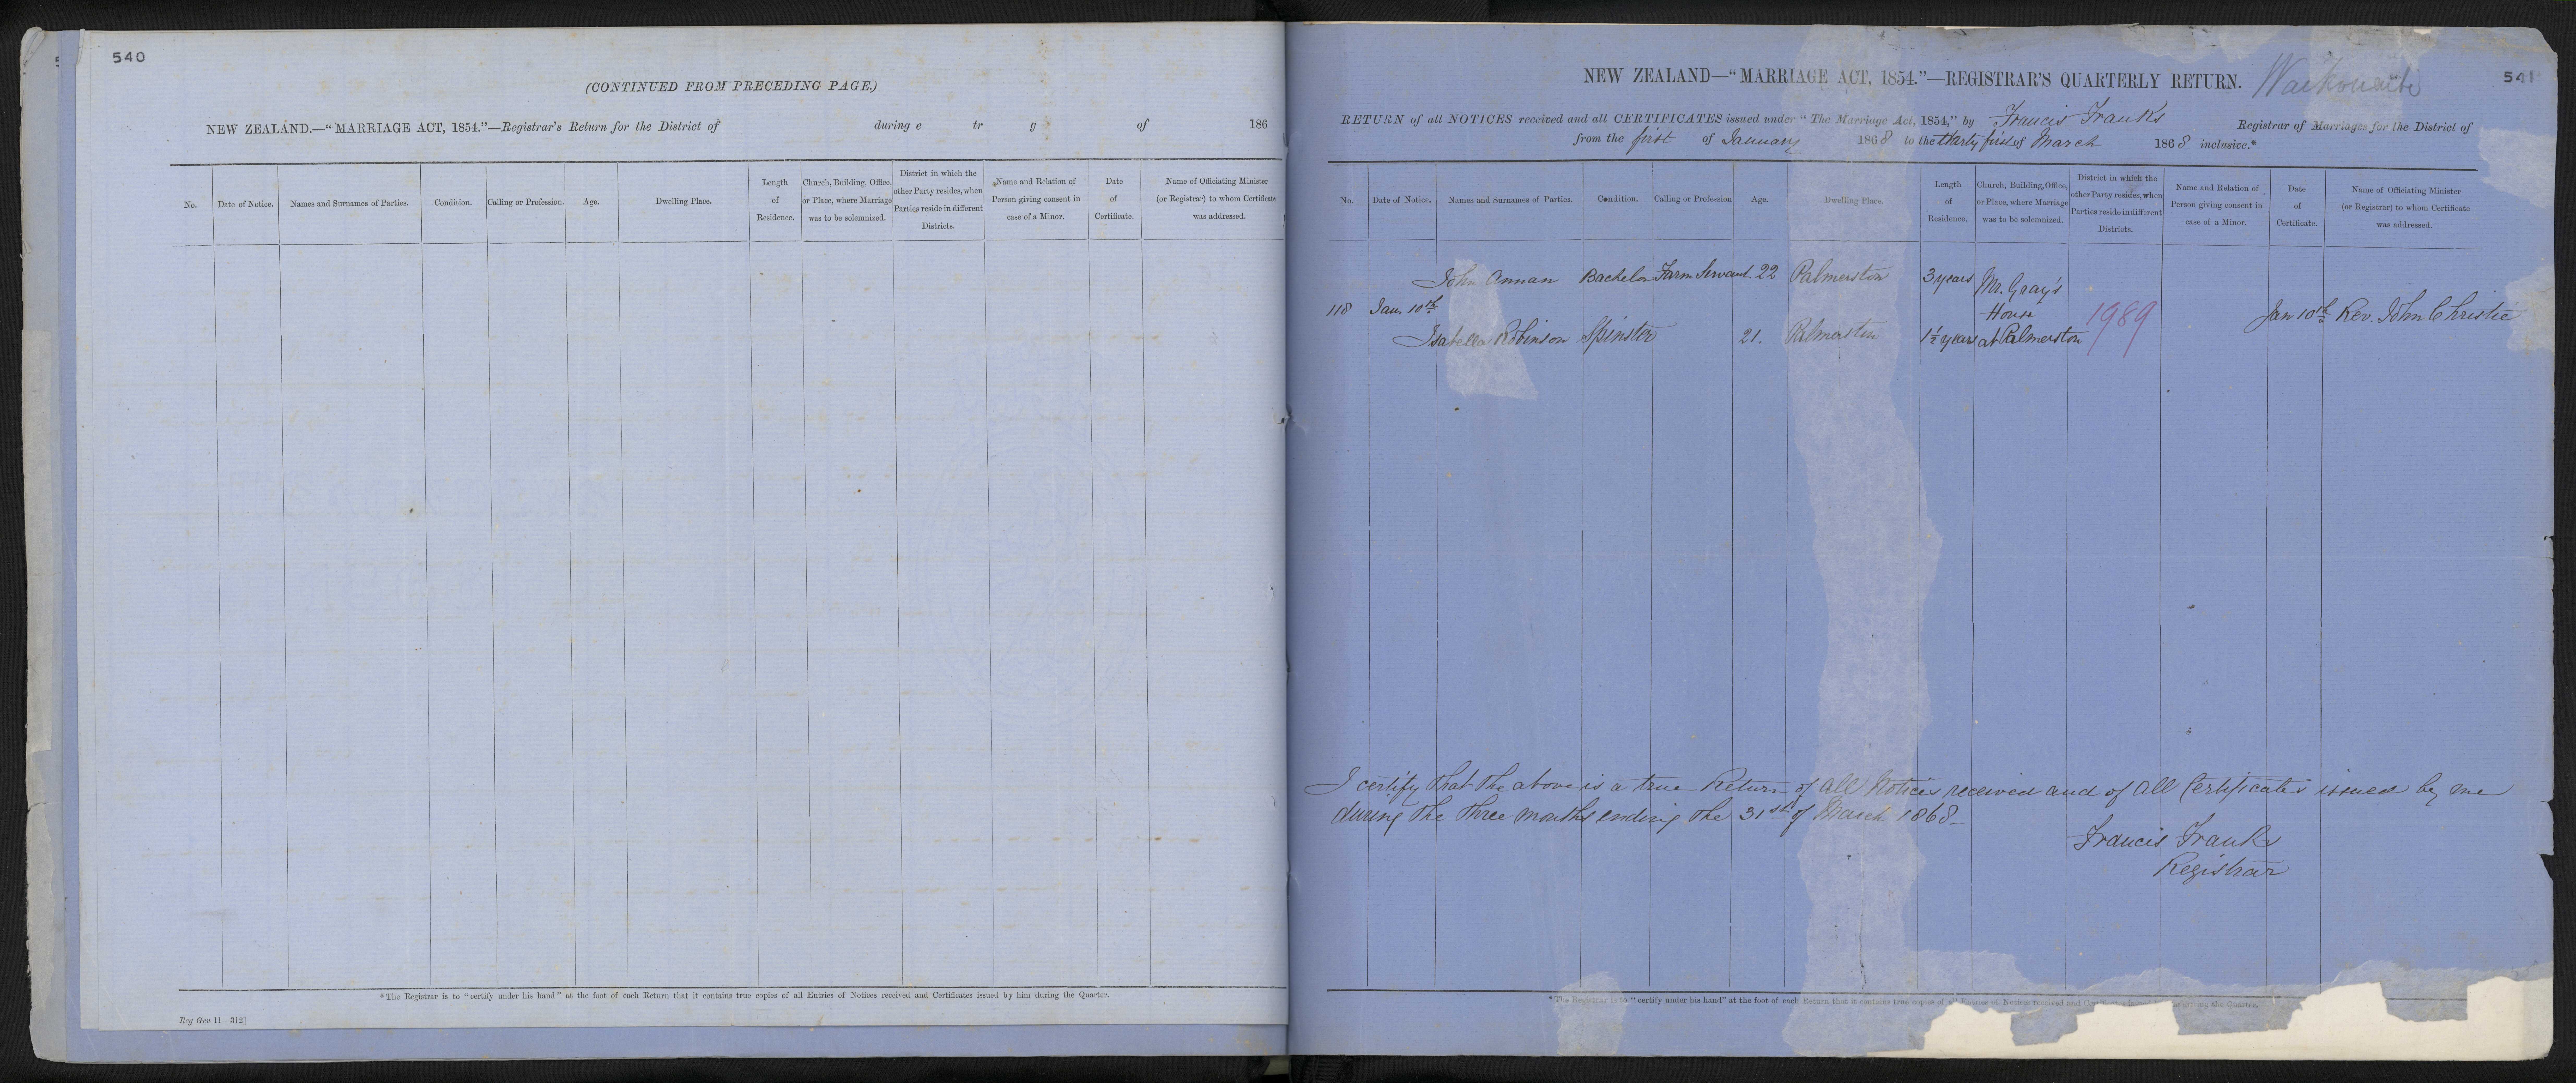 540
(CONTINUED FROM PRECEDING PAGE.)
NEW ZEALAND.—"MARRIAGE ACT, 1854."—Registrar's Return for the District of during e tr g of 186
No. Date of Notice. Names and Surnames of Parties. Condition. Calling or Profession. Age. Dwelling Place. Length of Residence. Church, Building, Office, or Place, where Marriage was to be solemnized. District in which the other Party resides, when Parties reside in different Districts. Name and Relation of Person giving consent in case of a Minor. Date of Certificate. Name of Officiating Minister (or Registrar) to whom Certificate was addressed.
*The Registrar is to "certify under his hand" at the foot of each Return that it contains true copies of all Entries of Notices received and Certificates issued by him during the Quarter.
Reg Gen 11—312]
NEW ZEALAND—"MARRIAGE ACT, 1854."—REGISTRAR'S QUARTERLY RETURN. Waikouaiti 541
RETURN of all NOTICES received and all CERTIFICATES issued under "The Marriage Act, 1854," by Francis Franks Registrar of Marriages for the District of
from the first of January 1868 to the thirty first of March 1868 inclusive.*
No. Date of Notice. Names and Surnames of Parties. Condition. Calling or Profession Age. Dwelling Place. Length of Residence. Church, Building, Office, or Place, where Marriage was to be solemnized. District in which the other Party resides, when Parties reside in different Districts. Name and Relation of Person giving consent in case of a Minor. Date of Certificate. Name of Officiating Minister (or Registrar) to whom Certificate was addressed.
John Annan Bachelor Farm Servant 22 Palmerston 3 years Mr. Gray's
118 Jan. 10th House 1989 Jan 10th Rev. John Christie
Isabella Robinson Spinster 21. Palmerston 1½ years at Palmerston
I certify that the above is a true Return of all Notices received and of all Certificates issued by me
during the three months ending the 31st of March 1868—
Francis Franks
Registrar
*The Registrar is to "certify under his hand" at the foot of each Return that it contains true copies of all Entries of Notices received and during the Quarter.